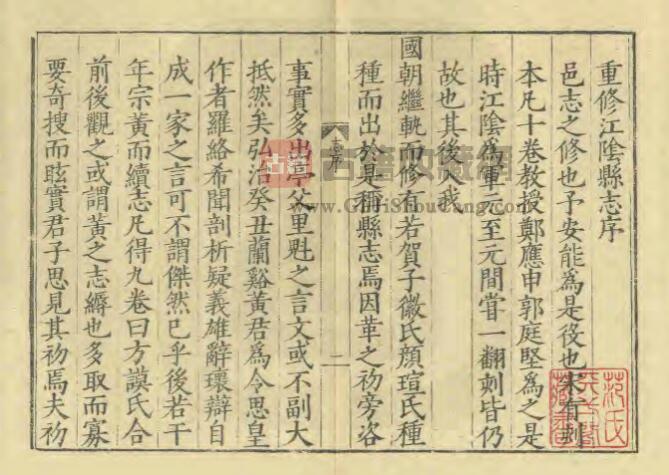 重修江陰縣志序
邑志之修也予安能為是役也宋有刻
本凡十卷教授鄭應申郭庭堅為之是
時江陰為軍元至元間嘗一翻刻皆仍
故也其後入我
國朝繼軌而修有若賀子徽氏顏瑄氏種
種而出於是稱縣志焉因革之初旁咨
二
事實多出亭父里魁之言文或不副大
抵然矣弘治癸丑蘭谿黃君為令思皇
作者羅絡希聞剖析疑義雄辭瓌辯自
成一家之言可不謂傑然已乎後若干
年宗黃而續志凡得九卷曰方謨氏合
前後觀之或謂黃之志縟也多取而寡
要奇搜而眩實君子思見其初焉夫初
古籍
古籍收藏网
www.GuJiShouCang.com